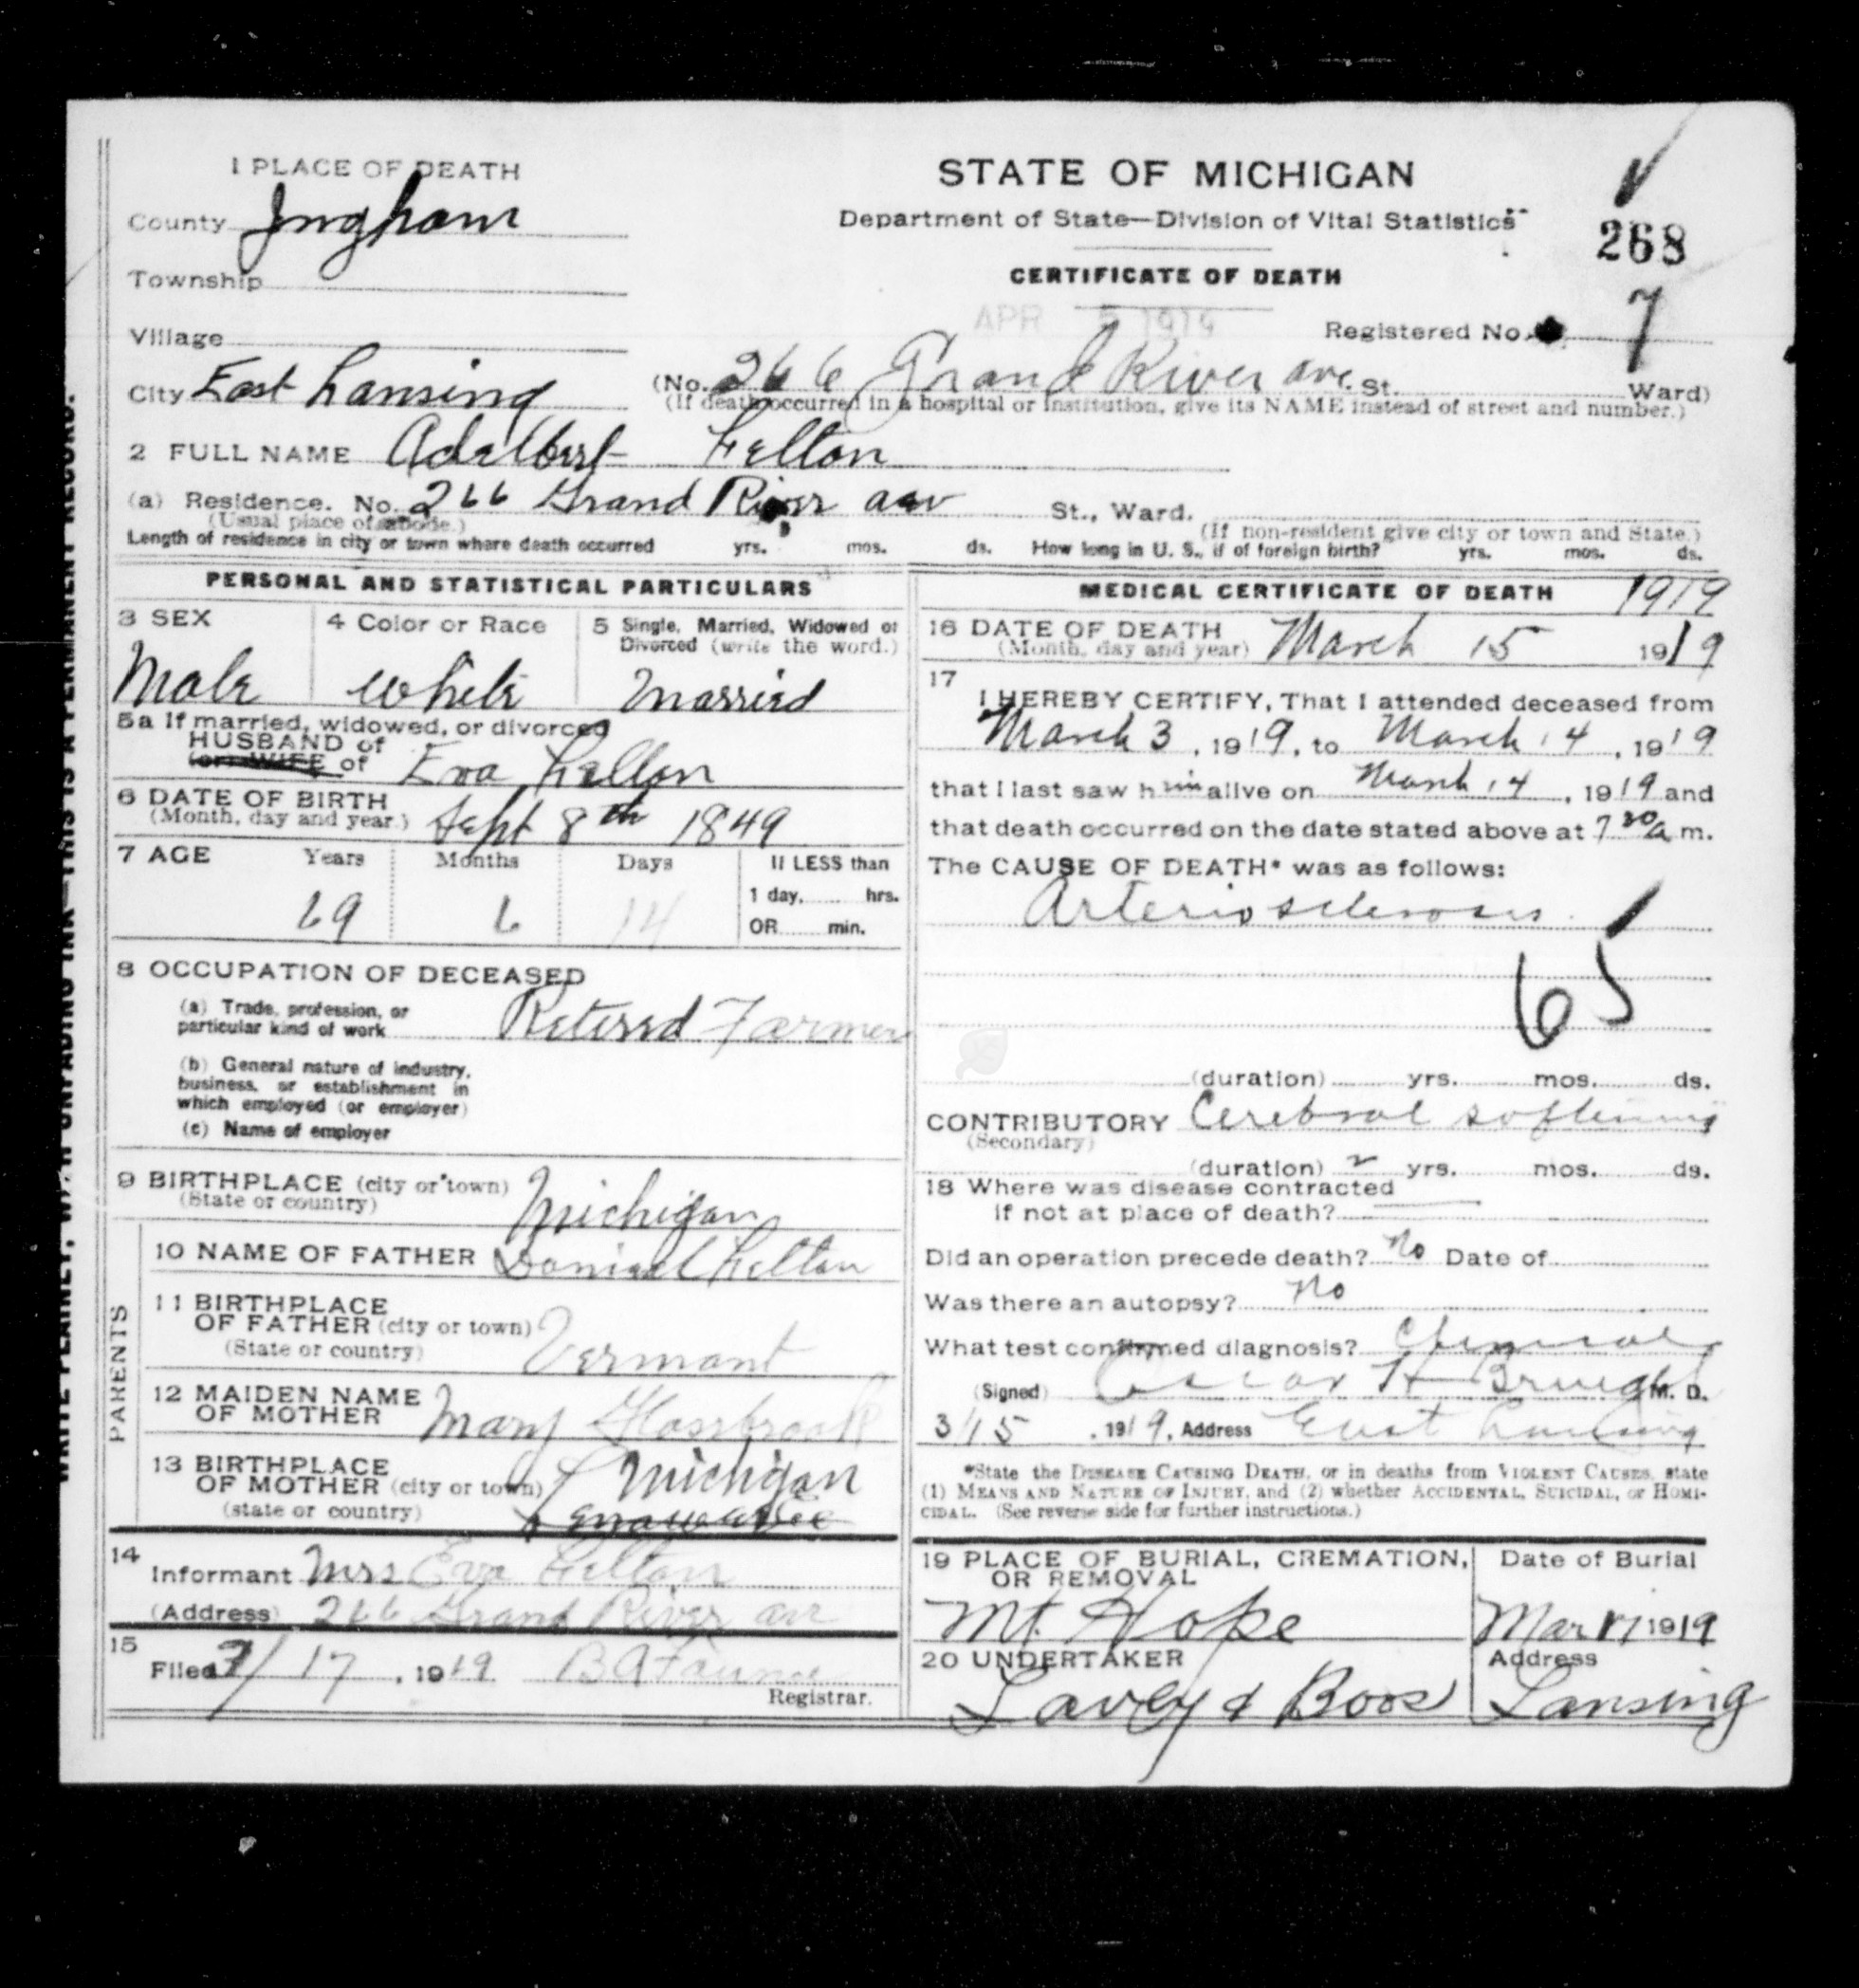 1 PLACE OF DEATH
County Ingham
Township
Village
City East Lansing
STATE OF MICHIGAN
Department of State—Division of Vital Statistics
CERTIFICATE OF DEATH
268
APR 5 1919
Registered No. 7
(No. 266 Grand River ave. St. Ward)
(If death occurred in a hospital or institution, give its NAME instead of street and number.)
2 FULL NAME Adelbert Felton
(a) Residence. No. 266 Grand River ave St., Ward.
(Usual place of abode.) (If non-resident give city or town and State.)
Length of residence in city or town where death occurred yrs. mos. ds. How long in U. S., if of foreign birth? yrs. mos. ds.
PERSONAL AND STATISTICAL PARTICULARS
3 SEX
Male
4 Color or Race
White
5 Single, Married, Widowed or
Divorced (write the word.)
Married
5a If married, widowed, or divorced
HUSBAND of
(or) WIFE of Eva Felton
6 DATE OF BIRTH
(Month, day and year.) Sept 8th 1849
7 AGE Years Months Days If LESS than
1 day, hrs.
69 6 14 OR min.
8 OCCUPATION OF DECEASED
(a) Trade, profession, or
particular kind of work Retired Farmer
(b) General nature of industry,
business, or establishment in
which employed (or employer)
(c) Name of employer
9 BIRTHPLACE (city or town)
(State or country) Michigan
PARENTS
10 NAME OF FATHER Daniel Felton
11 BIRTHPLACE
OF FATHER (city or town)
(State or country) Vermont
12 MAIDEN NAME
OF MOTHER Mary
13 BIRTHPLACE
OF MOTHER (city or town) Michigan
(state or country) Lenawee
14
Informant Mrs Eva Felton
(Address) 266 Grand River ave
15
Filed 3/17, 1919 B A Faunce
Registrar.
MEDICAL CERTIFICATE OF DEATH 1919
16 DATE OF DEATH
(Month, day and year) March 15 1919
17
I HEREBY CERTIFY, That I attended deceased from
March 3, 1919, to March 14, 1919
that I last saw him alive on March 14, 1919 and
that death occurred on the date stated above at 7 30 a m.
The CAUSE OF DEATH* was as follows:
Arteriosclerosis
65
(duration) yrs. mos. ds.
CONTRIBUTORY Cerebral softening
(Secondary)
(duration) 2 yrs. mos. ds.
18 Where was disease contracted
if not at place of death?
Did an operation precede death? No Date of
Was there an autopsy? No
What test confirmed diagnosis?
(Signed) Oscar H Bruegel M. D.
3/15, 1919, Address East Lansing
*State the DISEASE CAUSING DEATH, or in deaths from VIOLENT CAUSES, state
(1) MEANS AND NATURE OF INJURY, and (2) whether ACCIDENTAL, SUICIDAL, or HOMI-
CIDAL. (See reverse side for further instructions.)
19 PLACE OF BURIAL, CREMATION,
OR REMOVAL
Mt. Hope
Date of Burial
Mar 17 1919
20 UNDERTAKER
Lavey & Boos
Address
Lansing